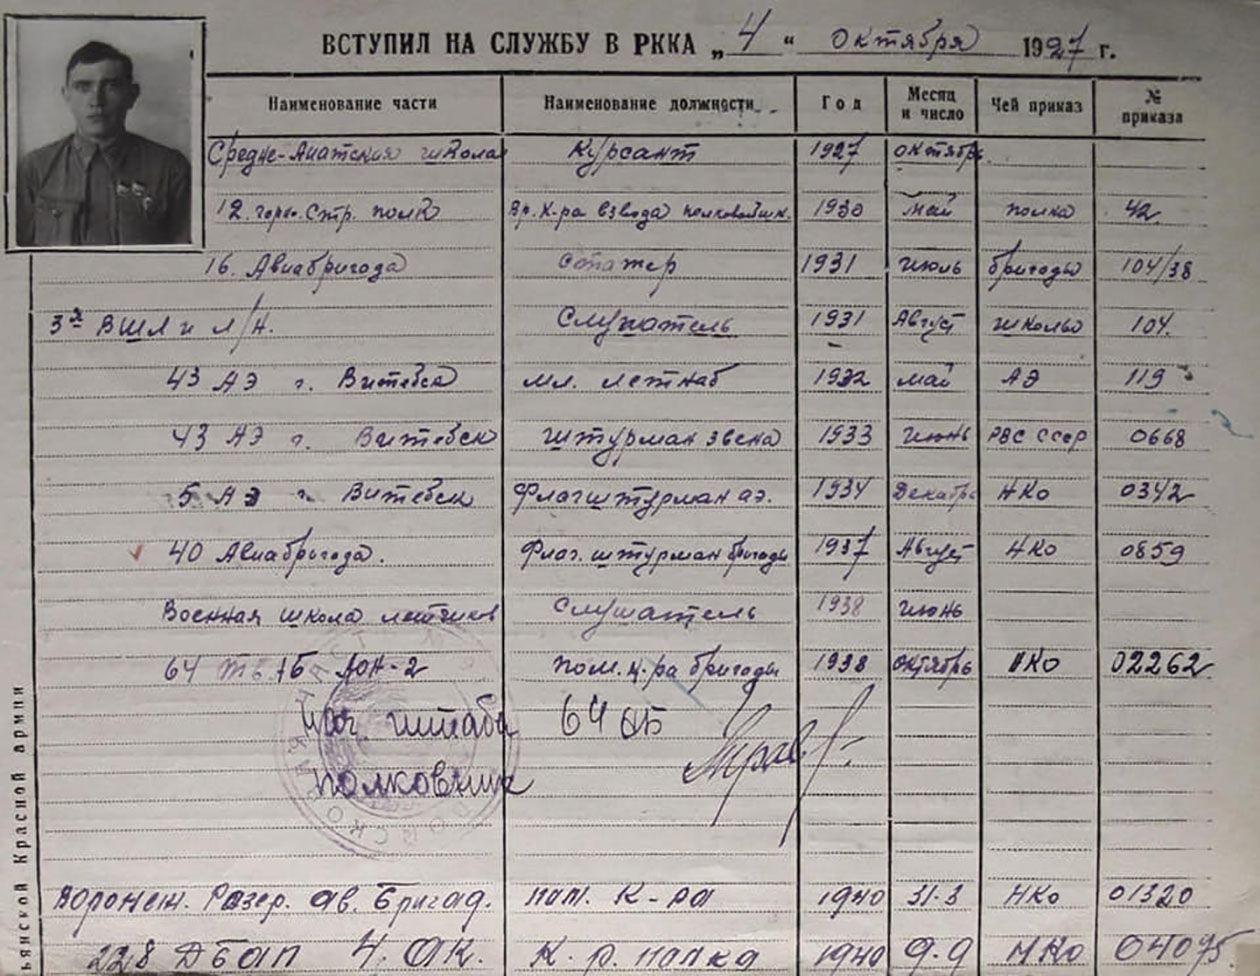 ВСТУПИЛ НА СЛУЖБУ В РККА „4“ октября 1927 г.
Наименование части Наименование должности Год Месяц и число Чей приказ № приказа
Средне-Азиатская школа Курсант 1927 октябрь
12. Стр. полк Вр. К-ра взвода 1930 май полка 42
16. Авиабригада Стажер 1931 июль бригады 104/38
3я ВШЛ и Л/Н. Слушатель 1931 Август школы 104.
43 АЭ г. Витебск мл. летнаб 1932 май АЭ 119
43 АЭ г. Витебск штурман звена 1933 июнь РВС СССР 0668
5 АЭ г. Витебск Флагштурман аэ. 1934 Декабрь НКО 0342
40 Авиабригада. Флаг. штурман бригады 1937 Август НКО 0859
Военная школа летчиков Слушатель 1938 июнь
64 АОН-2 пом. к-ра бригады 1938 октябрь НКО 02262
нач. штаба 64 аб
полковник
Воронеж. Резер. ав. Бригад. пом. К-ра 1940 31.3 НКО 01320
228 ДБАП 4. ак. К. р. полка 1940 9.9 НКО 04075
ьянской Красной армии